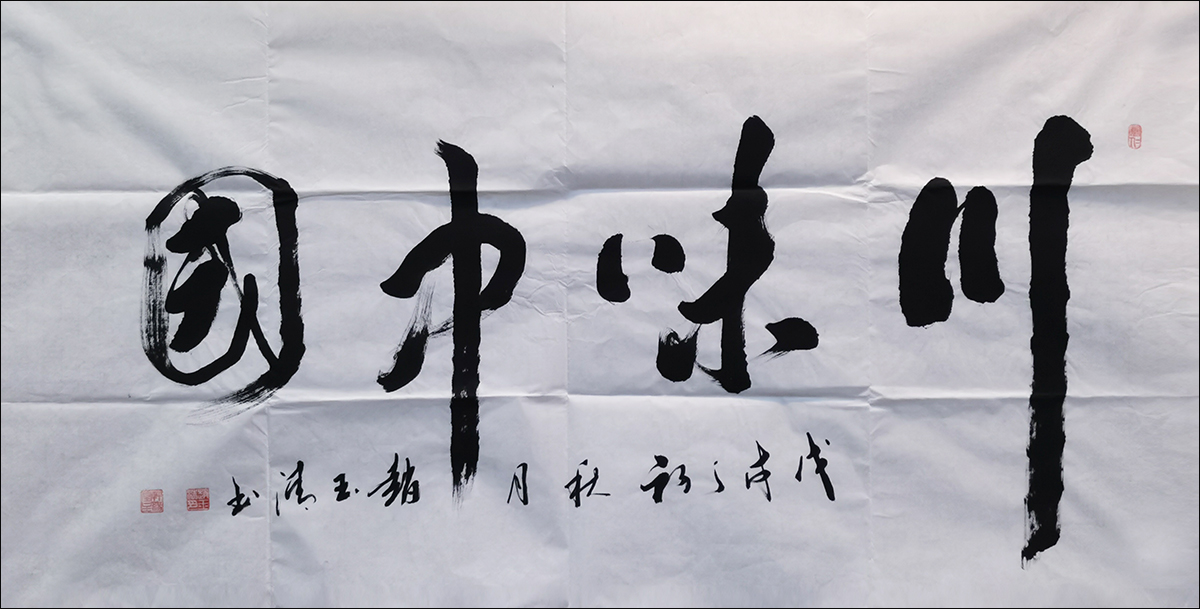 川味中國
戊戌之初秋月 趙玉清书